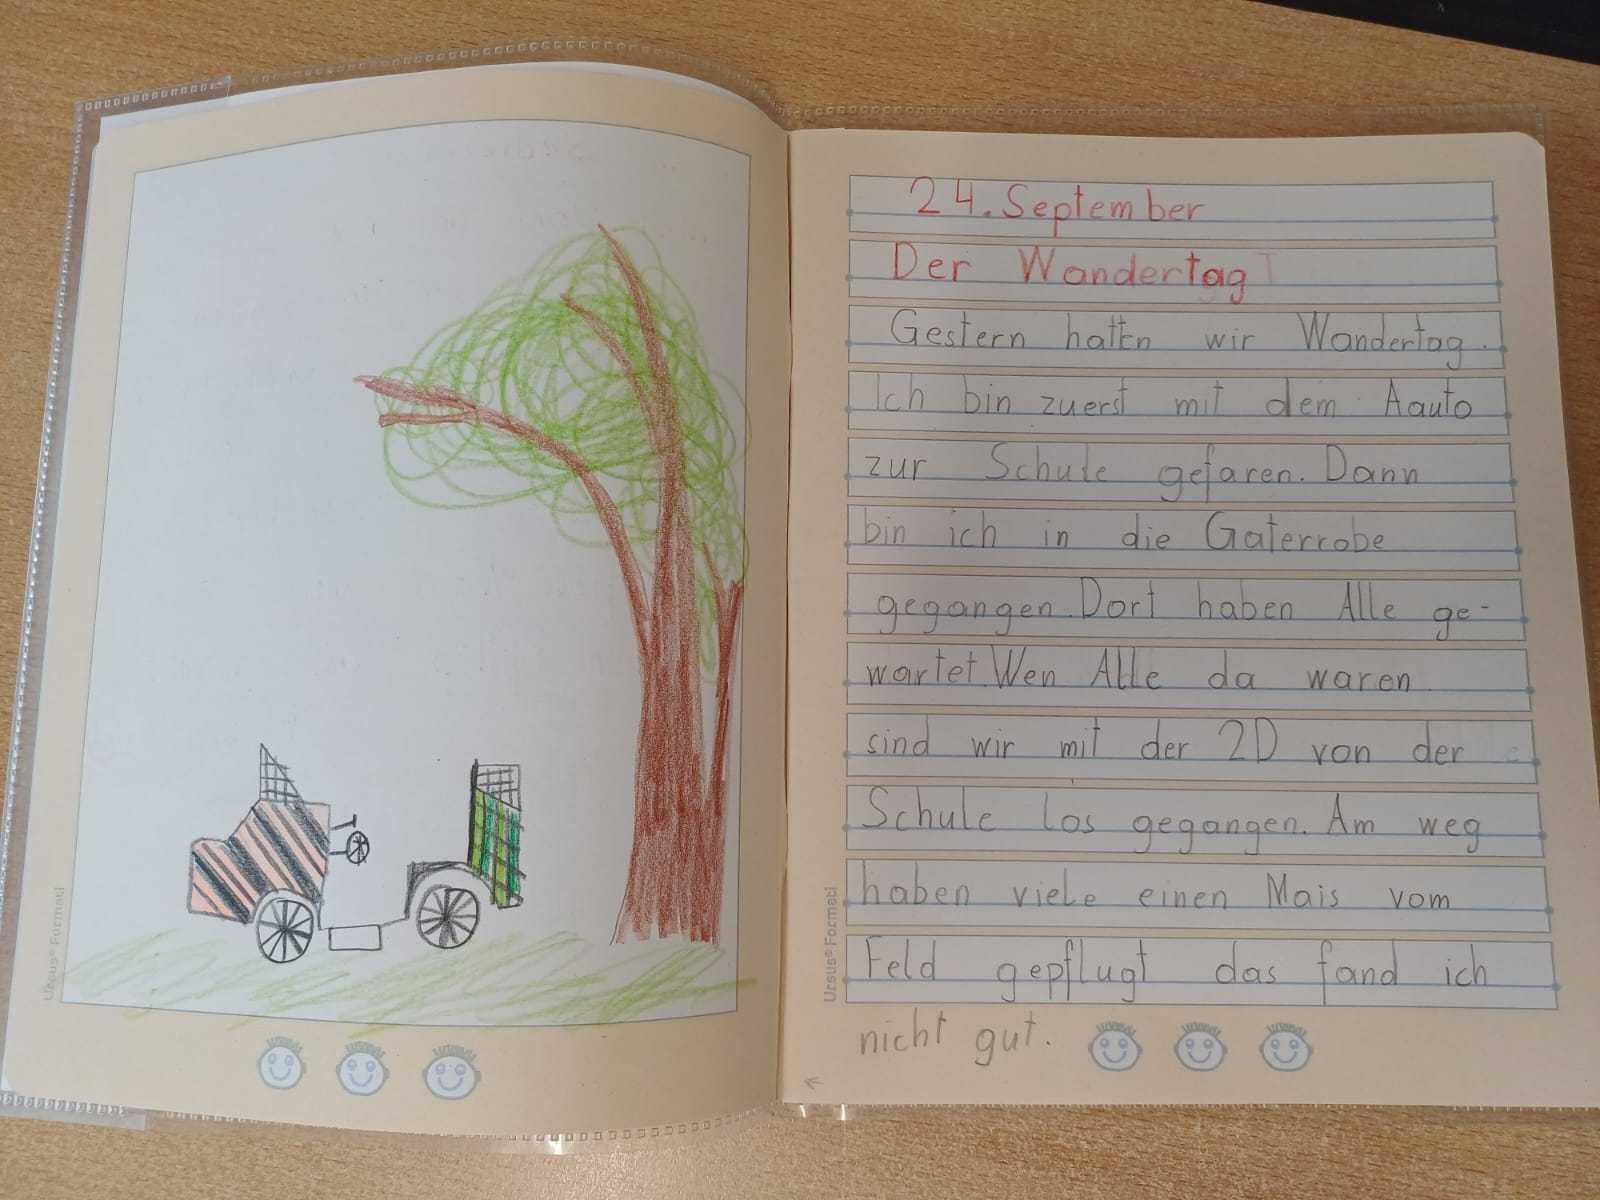 24. September
Der Wandertag
Gestern hatten wir Wandertag.
Ich bin zuerst mit dem Aauto
zur Schule gefaren. Dann
bin ich in die Gaterrobe
gegangen. Dort haben Alle ge-
wartet. Wen Alle da waren
sind wir mit der 2D von der
Schule los gegangen. Am weg
haben viele einen Mais vom
Feld gepflugt das fand ich
nicht gut.
Ursus® Formati
Ursus® Formati